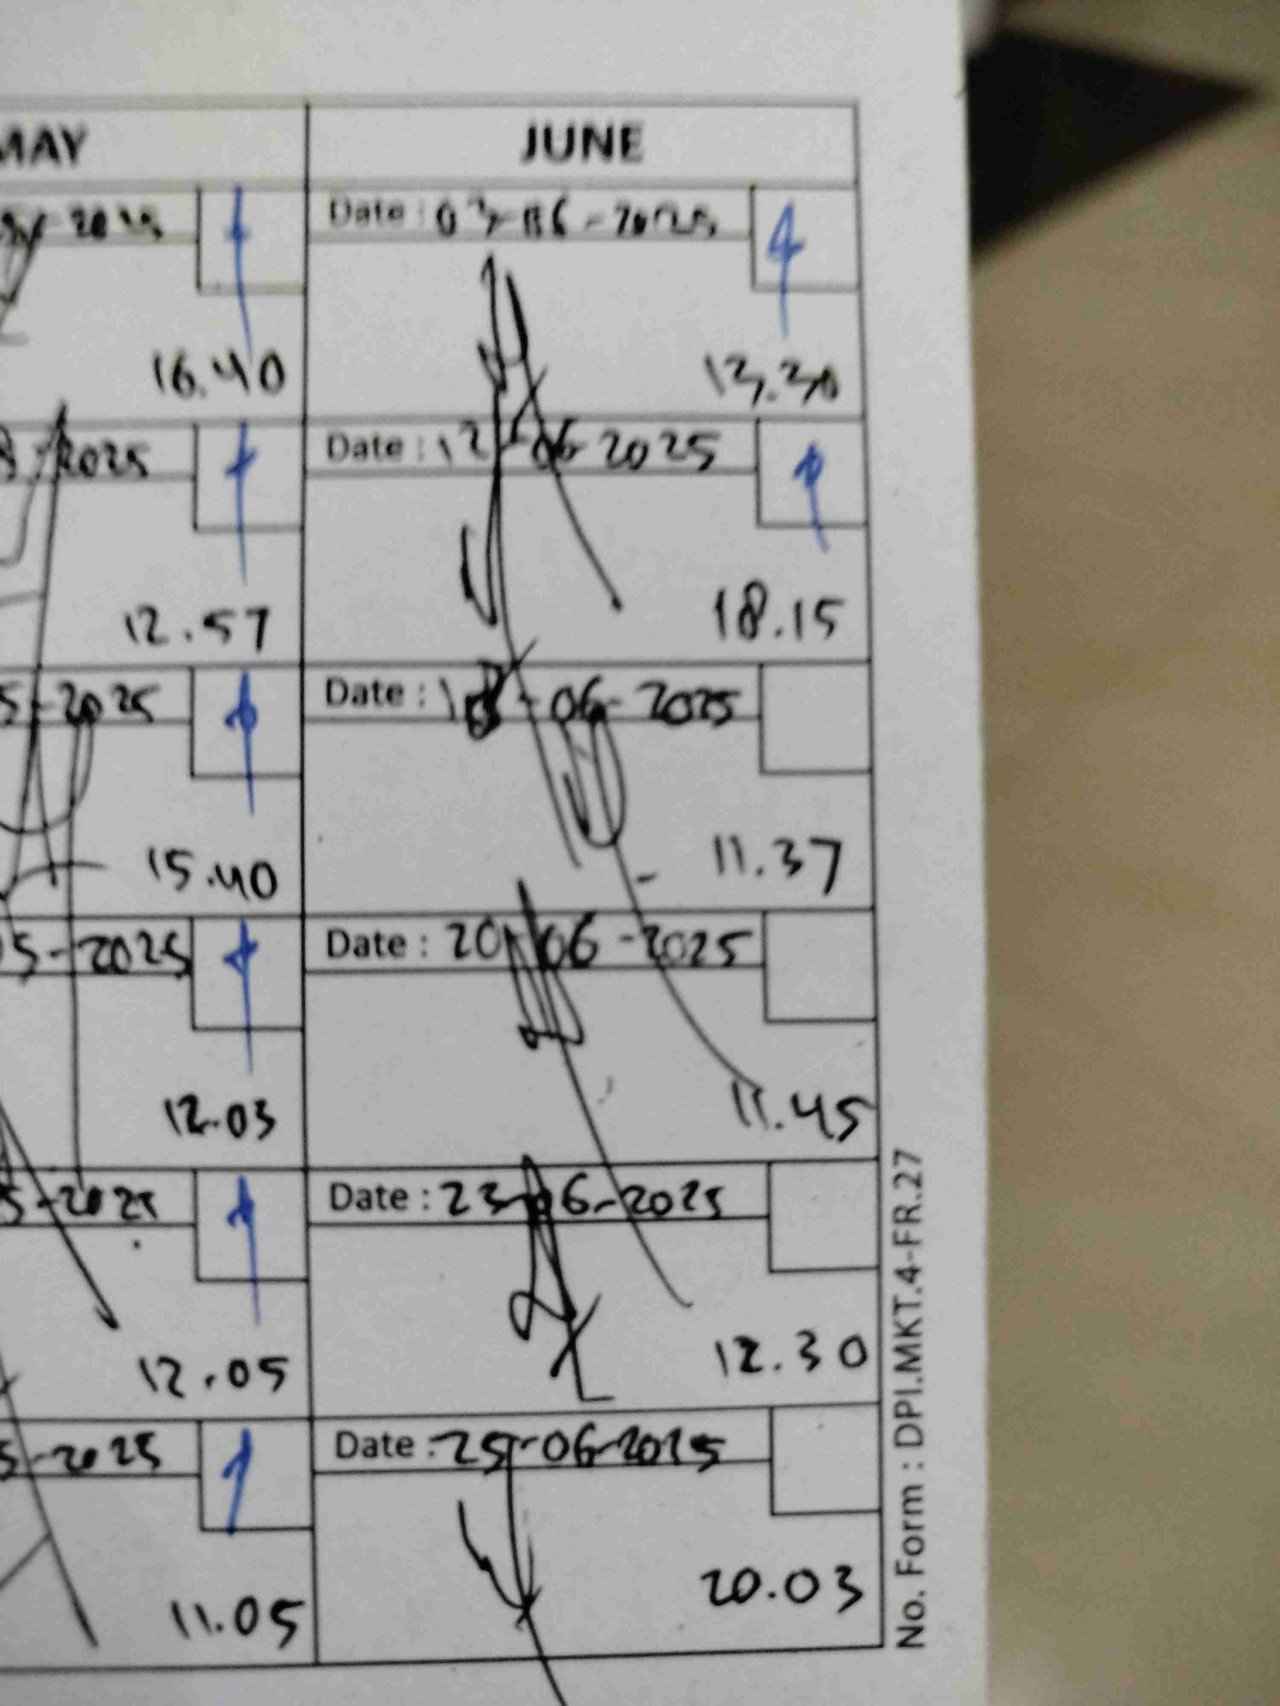 MAY
JUNE
2025
Date : 03-06-2025
16.40
13.30
2025
Date : 12-06-2025
12.57
18.15
5-2025
Date : 18-06-2025
15.40
11.37
05-2025
Date : 20-06-2025
12.03
11.45
5-2025
Date : 23-06-2025
12.05
12.30
5-2025
Date : 25-06-2025
11.05
20.03
No. Form : DPI.MKT.4-FR.27